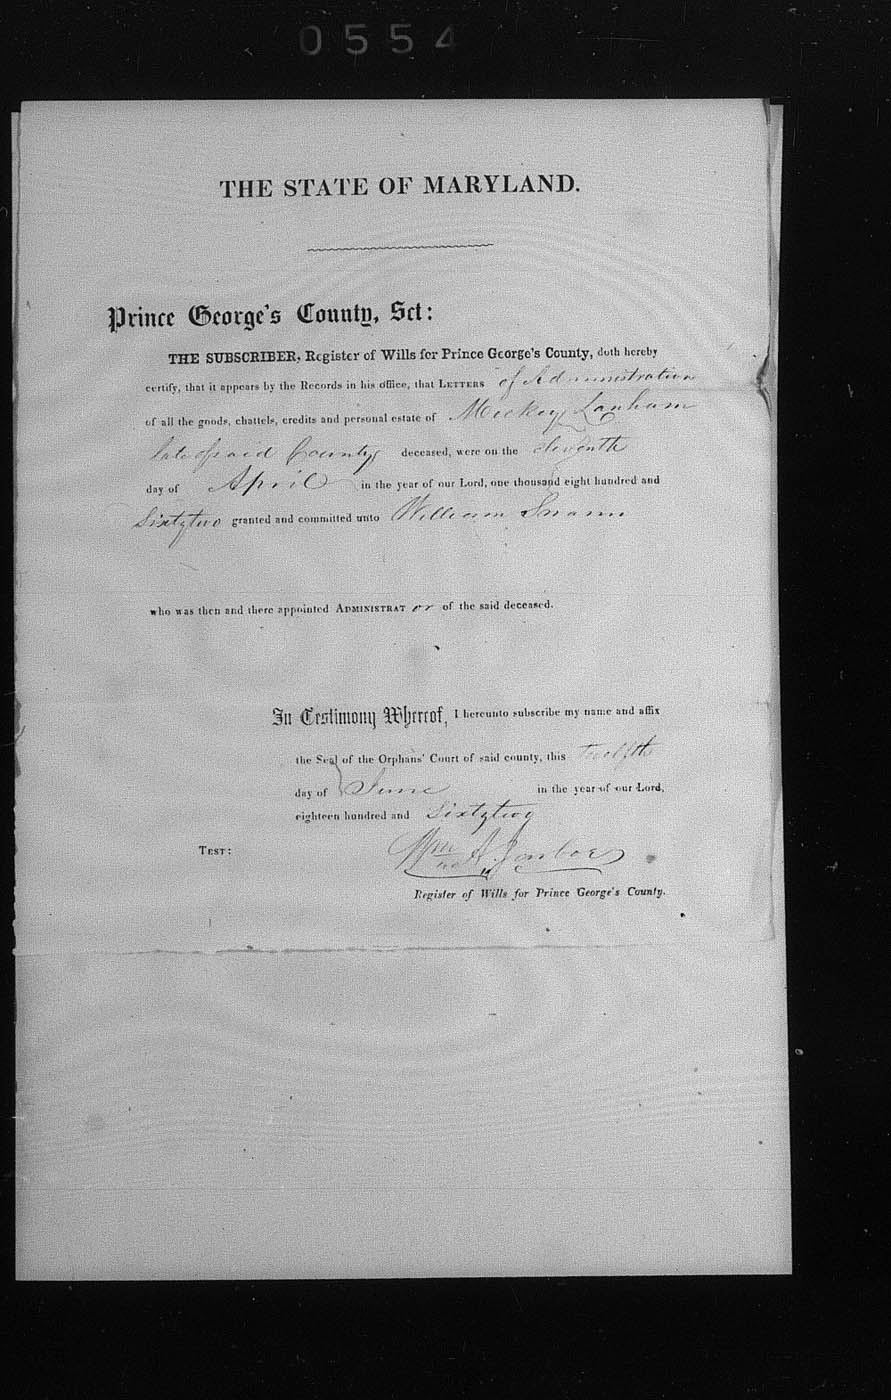 0554
THE STATE OF MARYLAND.
Prince George's County, Sct:
THE SUBSCRIBER, Register of Wills for Prince George's County, doth hereby
certify, that it appears by the Records in his office, that LETTERS of Administration
of all the goods, chattels, credits and personal estate of Mickey Lanham
late of said County deceased, were on the eleventh
day of April in the year of our Lord, one thousand eight hundred and
Sixtytwo granted and committed unto William
who was then and there appointed ADMINISTRAT or of the said deceased.
In Testimony Whereof, I hereunto subscribe my name and affix
the Seal of the Orphans' Court of said county, this twelfth
day of June in the year of our Lord,
eighteen hundred and Sixtytwo
TEST: Wm A. Jarboe
Register of Wills for Prince George's County.